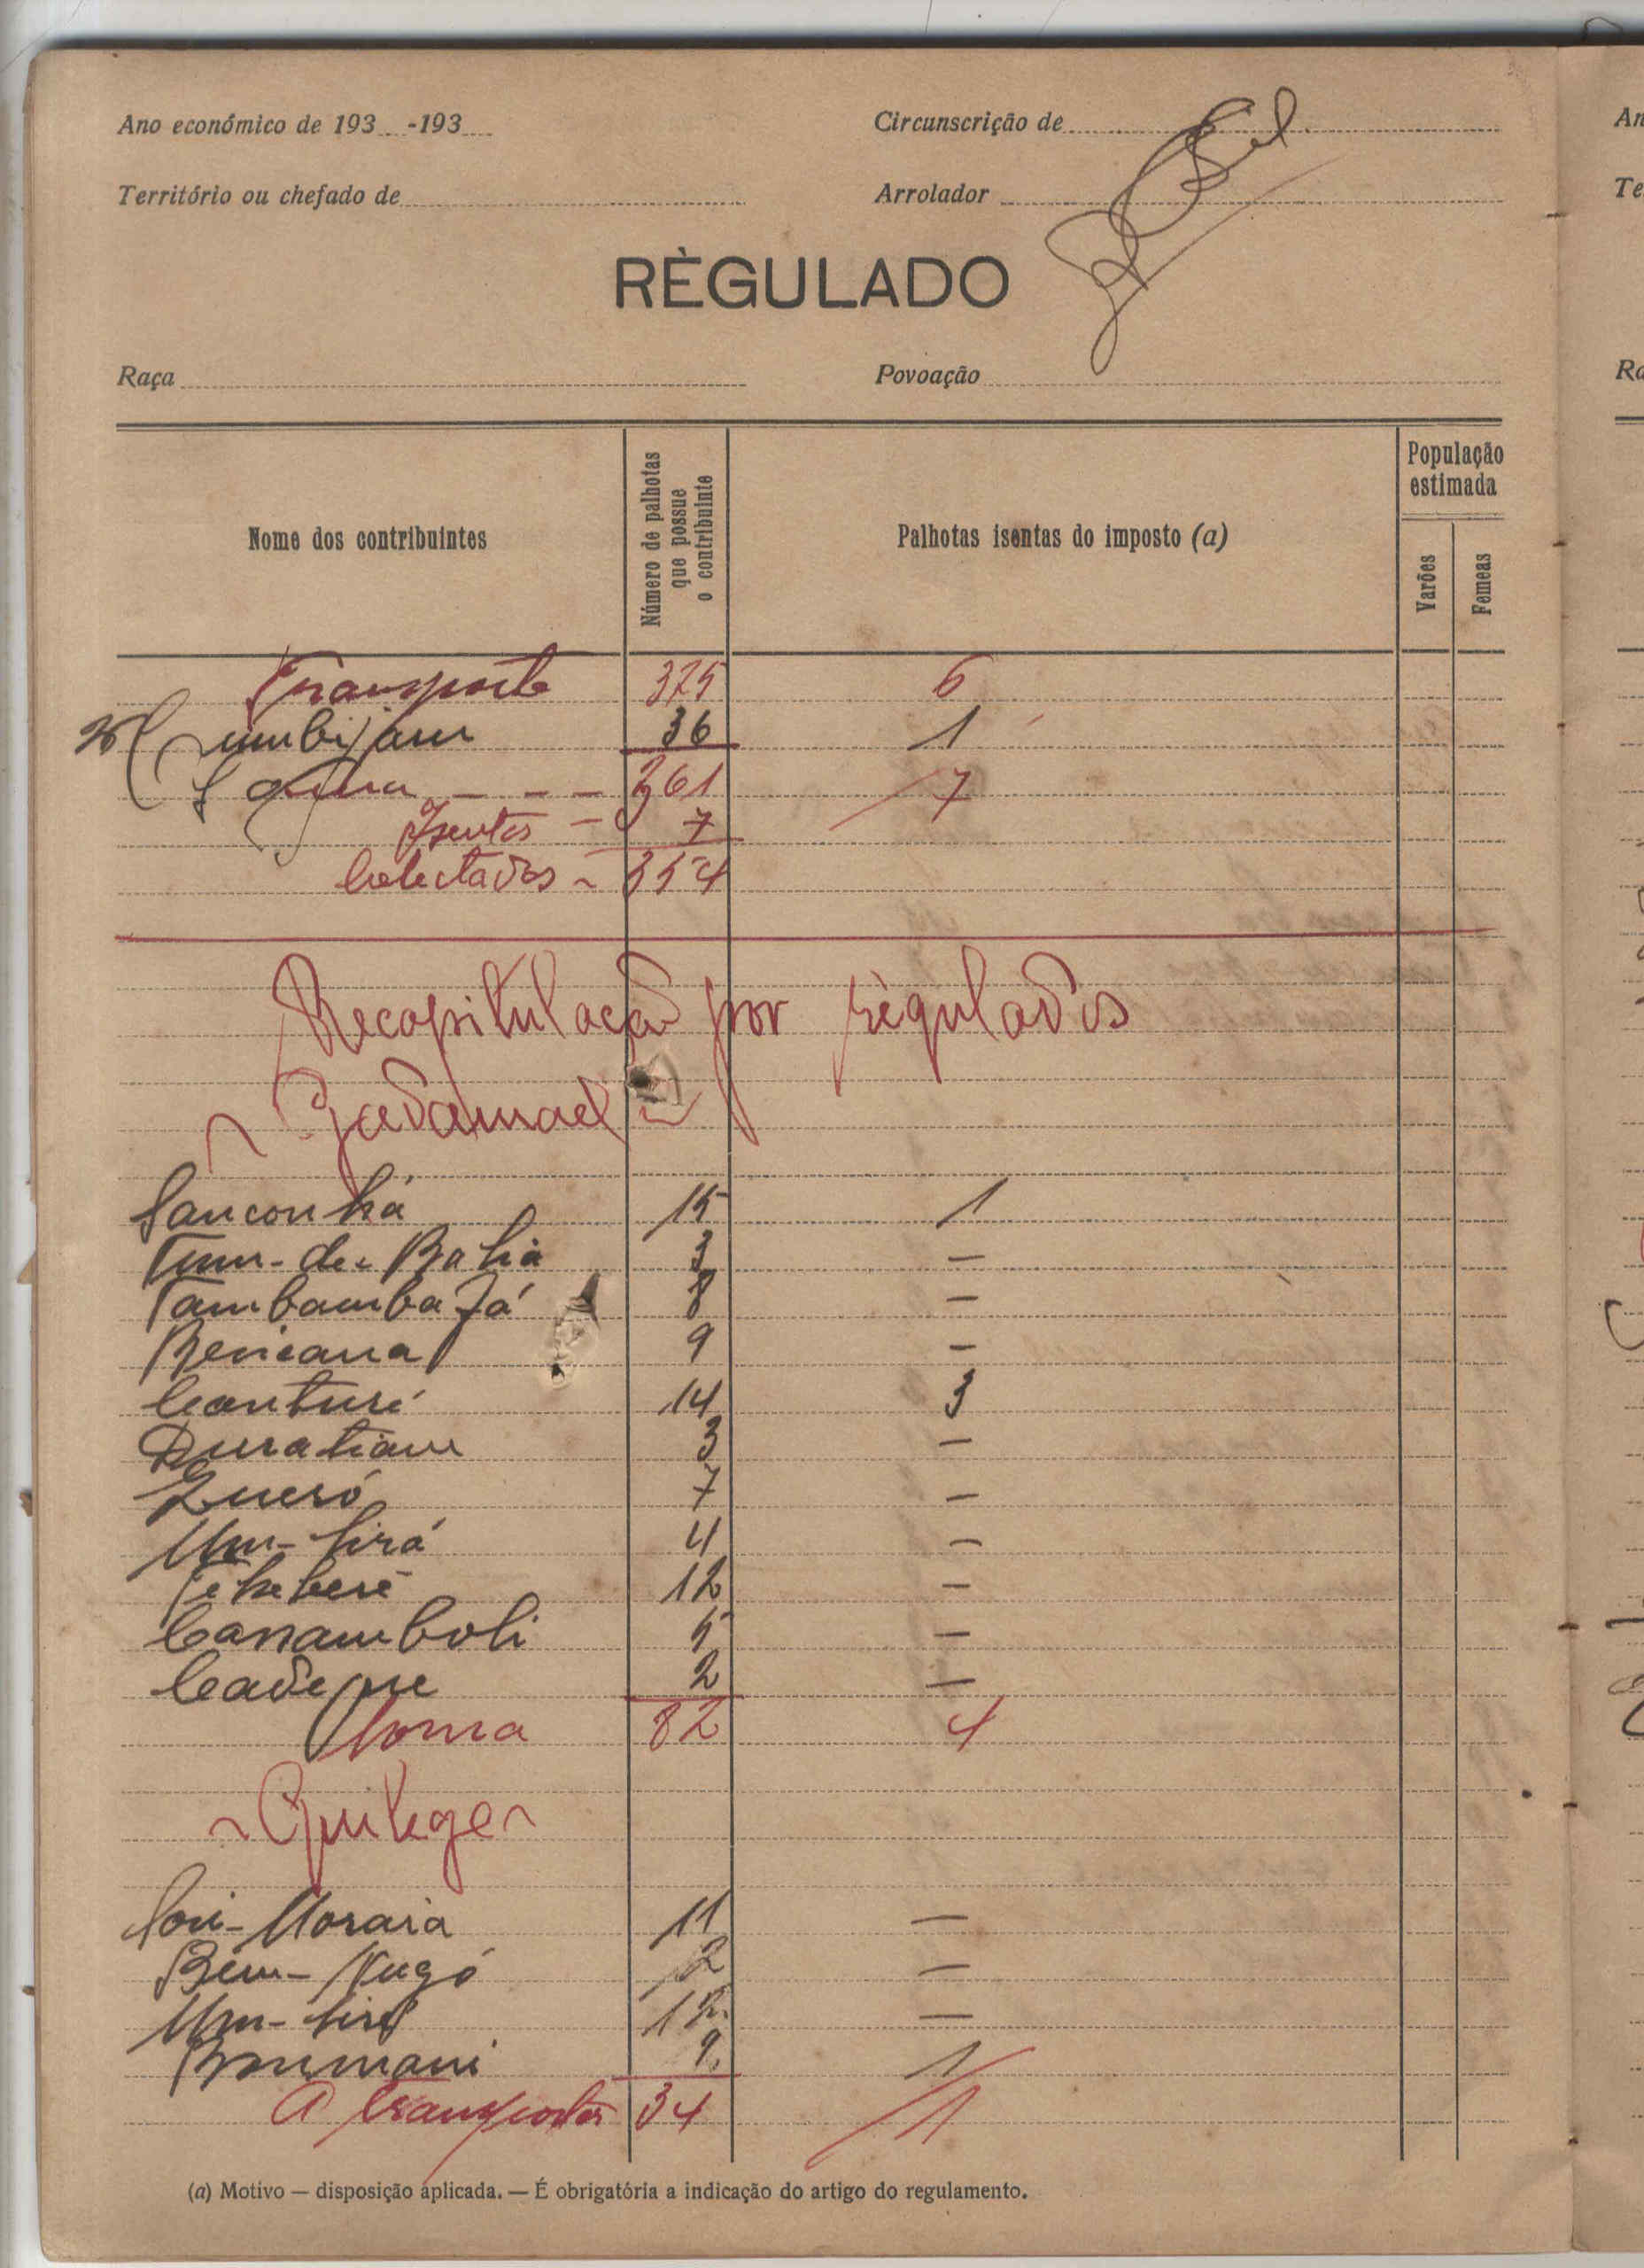 Ano económico de 193 -193
Circunscrição de
Território ou chefado de
Arrolador
RÈGULADO
Raça
Povoação
Nome dos contribuintes
Número de palhotas que possue o contribuinte
Palhotas isentas do imposto (a)
População estimada
Varões
Femeas
Transporte 325 6
36 1
Soma - - - 361 7
Isentos - 7
Colectados ~ 354
Recapitulação por règulados
~ Gadamael ~
Sanconhá 15 1
3 —
Tambambajá 8 —
9 —
Canturé 14 3
3 —
Queró 7 —
Um-Sirá 4 —
12 —
Canamboli 5 —
2 —
Soma 82 4
~ Guilege ~
11 —
2 —
12 —
9 1
A transportar 34 1
(a) Motivo — disposição aplicada. — É obrigatória a indicação do artigo do regulamento.